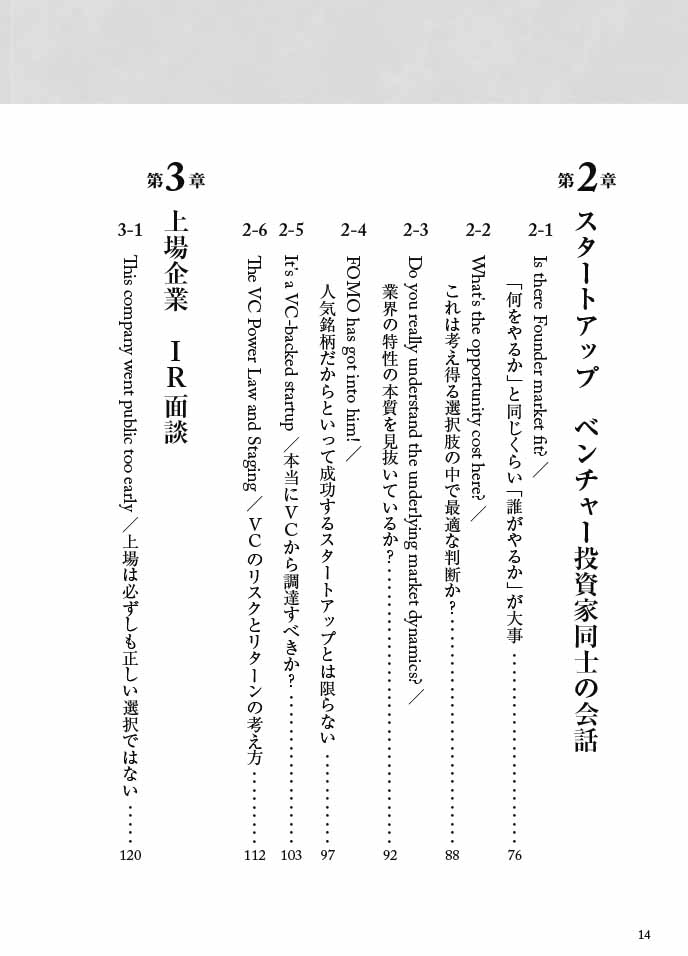 第2章 スタートアップ　ベンチャー投資家同士の会話
2-1 Is there Founder market fit?／
「何をやるか」と同じくらい「誰がやるか」が大事 ……………………… 76
2-2 What's the opportunity cost here?／
これは考え得る選択肢の中で最適な判断か？……………………… 88
2-3 Do you really understand the underlying market dynamics?／
業界の特性の本質を見抜いているか？……………………… 92
2-4 FOMO has got into him!／
人気銘柄だからといって成功するスタートアップとは限らない ………… 97
2-5 It's a VC-backed startup／本当にVCから調達すべきか？……………… 103
2-6 The VC Power Law and Staging／VCのリスクとリターンの考え方 ……… 112
第3章 上場企業　IR面談
3-1 This company went public too early／上場は必ずしも正しい選択ではない …… 120
14